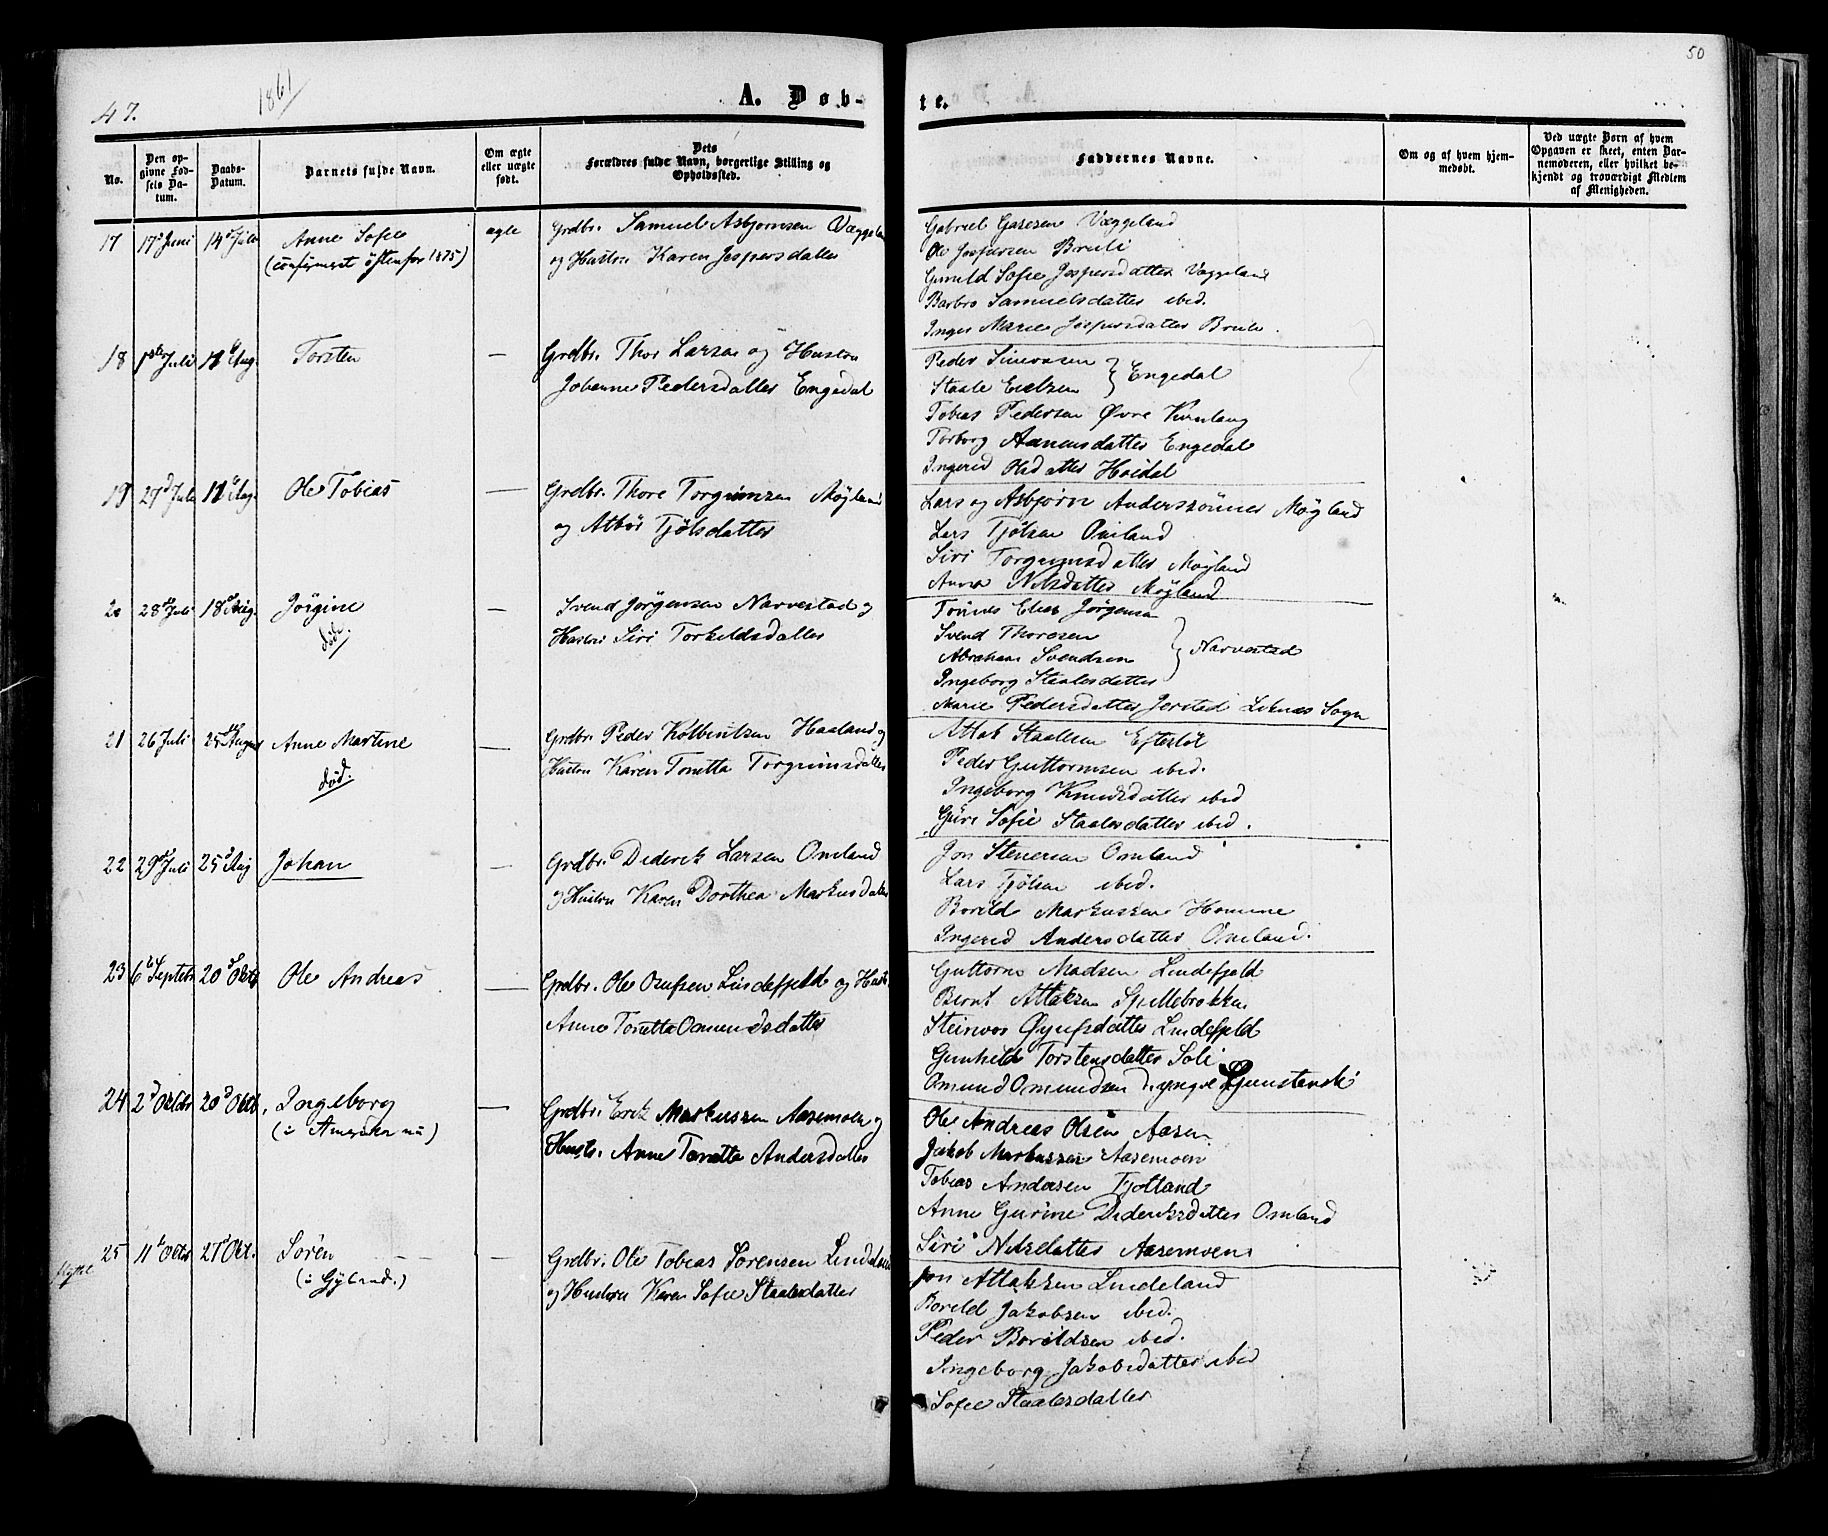 47.
1861
A. Døb-
te.
50
No.
Den opgivne Fødsels Datum.
Daabs-Datum.
Barnets fulde Navn.
Om ægte eller uægte født.
Dets Forældres fulde Navn, borgerlige Stilling og Opholdssted.
Faddernes Navne.
Om og af hvem hjemmedøbt.
Ved uægte Børn af hvem Opgaven er skeet, enten Barnemoderen, eller hvilket bekjendt og troværdigt Medlem af Menigheden.
17 17de Juni 14de Juli Anne Sofie ægte Grdbr. Samuel Asbjørnsen Væggeland
(confirmeret østenfor 1875) og Hustru Karen Jespersdatter
Gabriel Gasesen Væggeland
Ole Jespersen Bruli
Gunild Sofie Jespersdatter Væggeland
Barbro Samuelsdatter ibid.
Inger Marie Jespersdatter Bruli.
18 1ste Juli 11 Aug. Torsten — Grdbr. Thor Larsen og Hustru
Johanne Pedersdatter Engedal
Peder Simonsen
Staale Eielsen } Engedal
Tobias Pedersen Øvre
Torborg Aanensdatter Engedal
Ingerid Olsdatter Høidal
19 27d Juli 11 Aug. Ole Tobias — Grdbr. Thore Torgrimsen Møgland
og Atbør Tjølsdatter
Lars og Asbjørn Anderssønner Møgland
Lars Tjølsen Omland
Siri Torgrimsdatter Møgland
Anna Nilsdatter Møgland
20 28d Juli 18d Aug. Jørgine — Svend Jørgensen Narvestad og
død. Hustru Siri Torkildsdatter
Tønnes Elias Jørgensen
Svend Thoresen
Abraham Svendsen } Narvestad
Ingeborg Staalesdatter
Marie Pedersdatter Jerstad Liknes Sogn
21 26 Juli 25de August Anne Martine — Grdbr. Peder Kolbentsen Haaland og
død. Hustru Karen Tonetta Torgrimsdatter
Attak Staalesen Eftestøl
Peder Guttormsen ibid.
Ingeborg Knudsdatter ibid
Guri Sofie Staalesdatter ibid.
22 29d Juli 25d Aug Johan — Grdbr. Diderik Larsen Omland
og Hustru Karen Dorthea Markusdatter
Jon Stenersen Omland
Lars Tjølsen ibid.
Borild Markussen Homme
Ingerid Andersdatter Omland.
23 6te Septebr 20d Oktb Ole Andreas — Grdbr. Ole Osufsen Lindefjeld og Hust.
Anne Tonetta Omundsdatter
Guttorm Madsen Lindefjeld
Bernt Attaksen Spillebrokken
Steinvor Øyufsdatter Lindefjeld
Gunhild Torstensdatter Soli
Omund Omundsen d. yngre
24 2d Oktbr 20d Oktb. Ingeborg — Grdbr. Erik Markussen Aasemoen og
(i Amerika nu) Hustr. Anne Tonetta Andersdatter
Ole Andreas Olsen Aasen
Jakob Markussen Aasemoen
Tobias Andersen Tjotland
Anne Gurine Dideriksdatter Omland
Siri Nilsdatter Aasemoen
flytte 25 11te Oktbr 27d Okt. Søren — Grdbr. Ole Tobias Sørensen Lindeland
(i Gyland.) og Hustru Karen Sofie Staalesdatter
Jon Attaksen Lindeland
Borild Jakobsen ibid.
Peder Borildsen ibid.
Ingeborg Jakobsdatter ibid
Sofie Staalesdatter